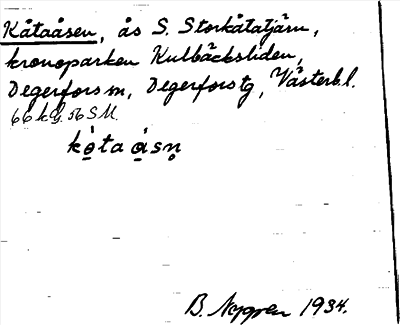 Kåtaåsen, ås S. Storkåtatjärn,
kronoparken Kulbäcksliden,
Degerfors sn, Degerfors tg, Västerb.l.
66 kg. 56 S.M.
kå̀ta åsn̥
B. Nygren 1934.